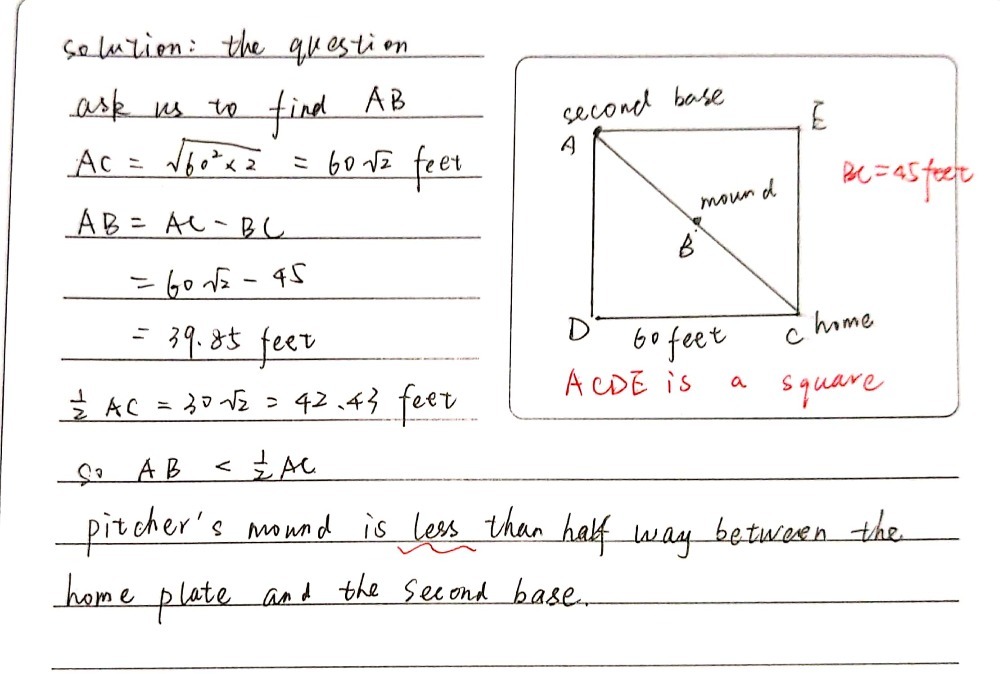 solution: the question
ask us to find AB
AC = √60²×2 = 60√2 feet
AB = AC - BC
= 60√2 - 45
= 39.85 feet
½ AC = 30√2 = 42.43 feet
so AB < ½ AC
pitcher's mound is less than half way between the
home plate and the second base.
second base
A
E
BC = 45 feet
mound
B
D
60 feet
C home
ACDE is a square